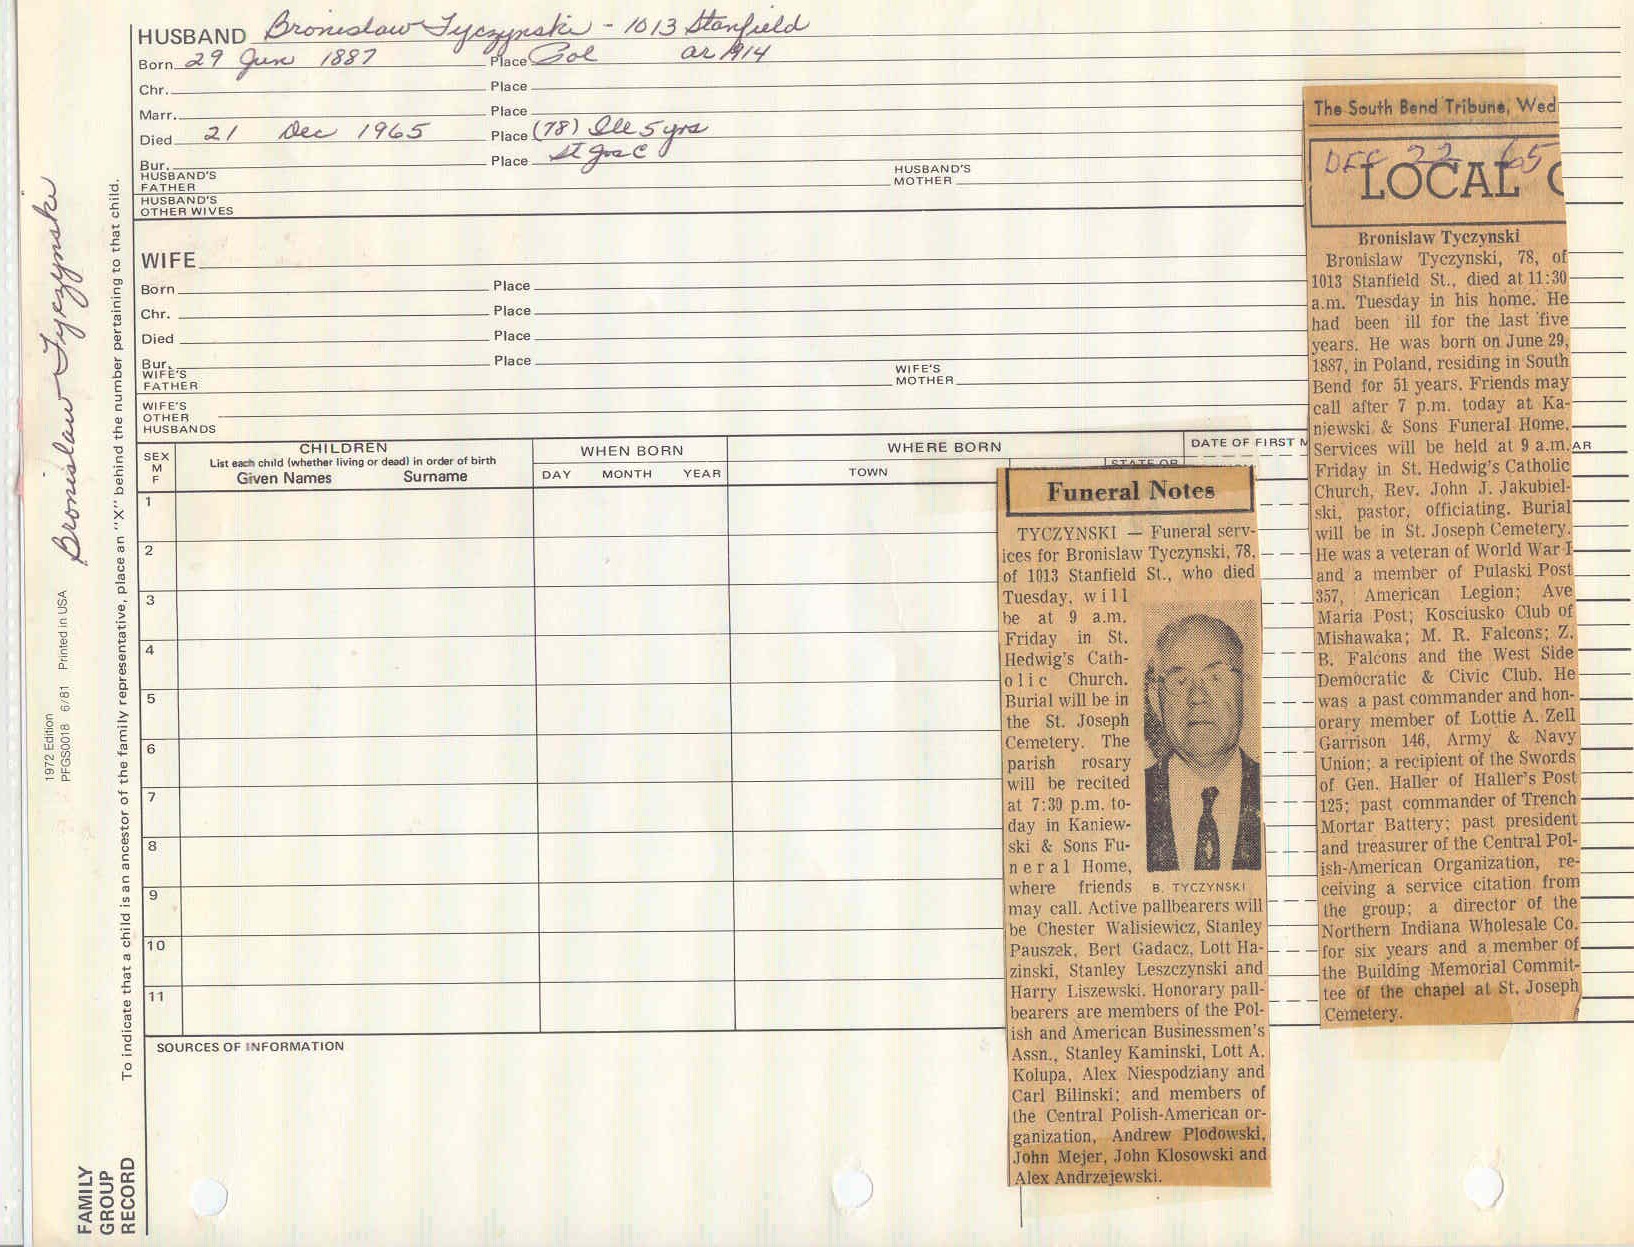 HUSBAND Bronislaw Tyczynski - 1013 Stanfield
Born 29 Jun 1887 Place Pol ar 1914
Chr. Place
Marr. Place
Died 21 Dec 1965 Place (78) Ill 5 yrs
Bur. Place St Jos C
HUSBAND'S FATHER HUSBAND'S MOTHER
HUSBAND'S OTHER WIVES
WIFE
Born Place
Chr. Place
Died Place
Bur. Place
WIFE'S FATHER WIFE'S MOTHER
WIFE'S OTHER HUSBANDS
SEX M F
CHILDREN
List each child (whether living or dead) in order of birth
Given Names Surname
WHEN BORN
DAY MONTH YEAR
WHERE BORN
TOWN
STATE OR
DATE OF FIRST M
AR
1
2
3
4
5
6
7
8
9
10
11
SOURCES OF INFORMATION
Bronislaw Tyczynski
To indicate that a child is an ancestor of the family representative, place an "X" behind the number pertaining to that child.
1972 Edition
PFGS0018 6/81 Printed in USA
FAMILY
GROUP
RECORD
Funeral Notes
TYCZYNSKI — Funeral serv-
ices for Bronislaw Tyczynski, 78,
of 1013 Stanfield St., who died
Tuesday, will
be at 9 a.m.
Friday in St.
Hedwig's Cath-
olic Church.
Burial will be in
the St. Joseph
Cemetery. The
parish rosary
will be recited
at 7:30 p.m. to-
day in Kaniew-
ski & Sons Fu-
neral Home,
where friends
B. TYCZYNSKI
may call. Active pallbearers will
be Chester Walisiewicz, Stanley
Pauszek, Bert Gadacz, Lott Ha-
zinski, Stanley Leszczynski and
Harry Liszewski. Honorary pall-
bearers are members of the Pol-
ish and American Businessmen's
Assn., Stanley Kaminski, Lott A.
Kolupa, Alex Niespodziany and
Carl Bilinski; and members of
the Central Polish-American or-
ganization, Andrew Plodowski,
John Mejer, John Klosowski and
Alex Andrzejewski.
The South Bend Tribune, Wed
DEC 22 65
LOCAL
Bronislaw Tyczynski
Bronislaw Tyczynski, 78, of
1013 Stanfield St., died at 11:30
a.m. Tuesday in his home. He
had been ill for the last five
years. He was born on June 29,
1887, in Poland, residing in South
Bend for 51 years. Friends may
call after 7 p.m. today at Ka-
niewski & Sons Funeral Home.
Services will be held at 9 a.m.
Friday in St. Hedwig's Catholic
Church, Rev. John J. Jakubiel-
ski, pastor, officiating. Burial
will be in St. Joseph Cemetery.
He was a veteran of World War I
and a member of Pulaski Post
357, American Legion; Ave
Maria Post; Kosciusko Club of
Mishawaka; M. R. Falcons; Z.
B. Falcons and the West Side
Democratic & Civic Club. He
was a past commander and hon-
orary member of Lottie A. Zell
Garrison 146, Army & Navy
Union; a recipient of the Swords
of Gen. Haller of Haller's Post
125; past commander of Trench
Mortar Battery; past president
and treasurer of the Central Pol-
ish-American Organization, re-
ceiving a service citation from
the group; a director of the
Northern Indiana Wholesale Co.
for six years and a member of
the Building Memorial Commit-
tee of the chapel at St. Joseph
Cemetery.